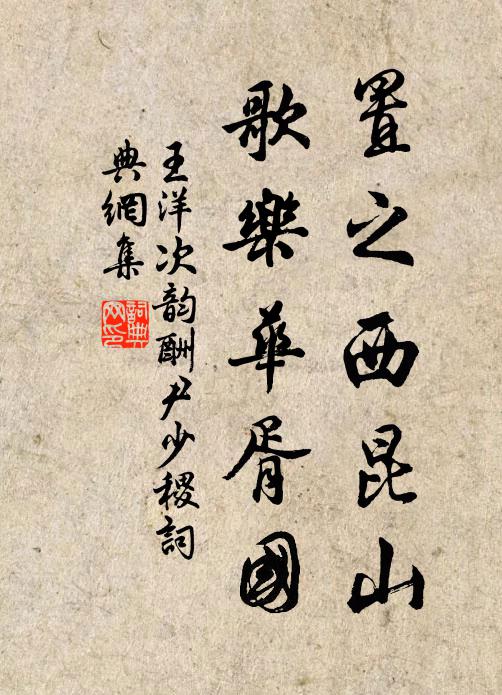 置之西昆山
歌樂華胥國
王洋次韵酬尹少稷詞
典網集
詞典网印